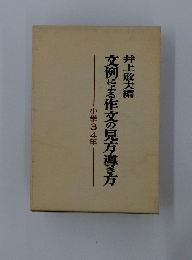 井上敏夫編
文例による作文の見方導き方
小学3 4年